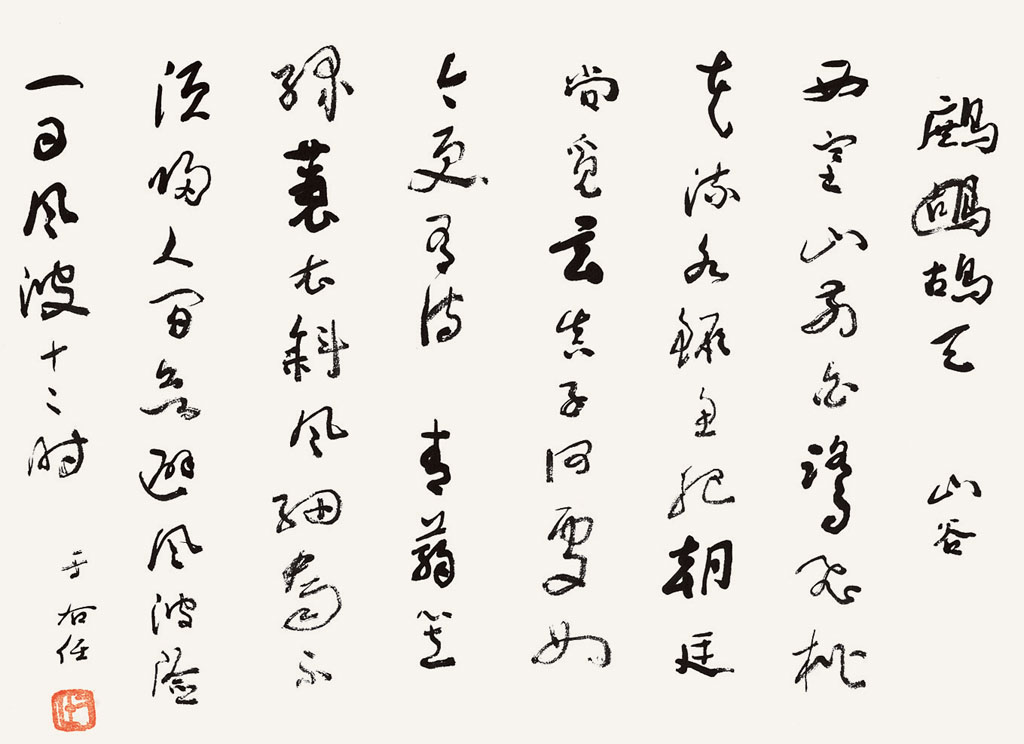 鷓鴣鴣天 山谷
西塞山前白鷺飛桃
花流水鱖魚肥朝廷
尚覓玄真子何處如
今更有詩 青蒻笠
綠蓑衣斜風細雨不
須歸人間無避風波險
一日風波十二時 于右任